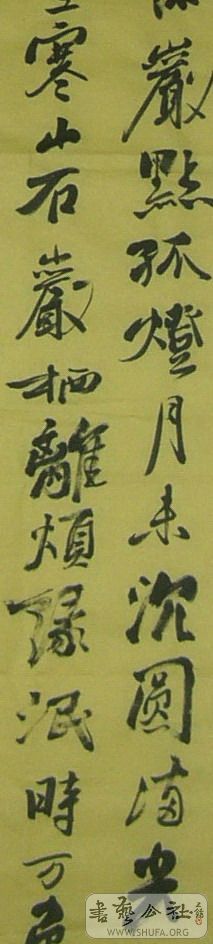 巖點孤燈月未沉圓滿光
寒山石巖栖離煩緣泯時万
書藝公社
WWW.SHUFA.ORG